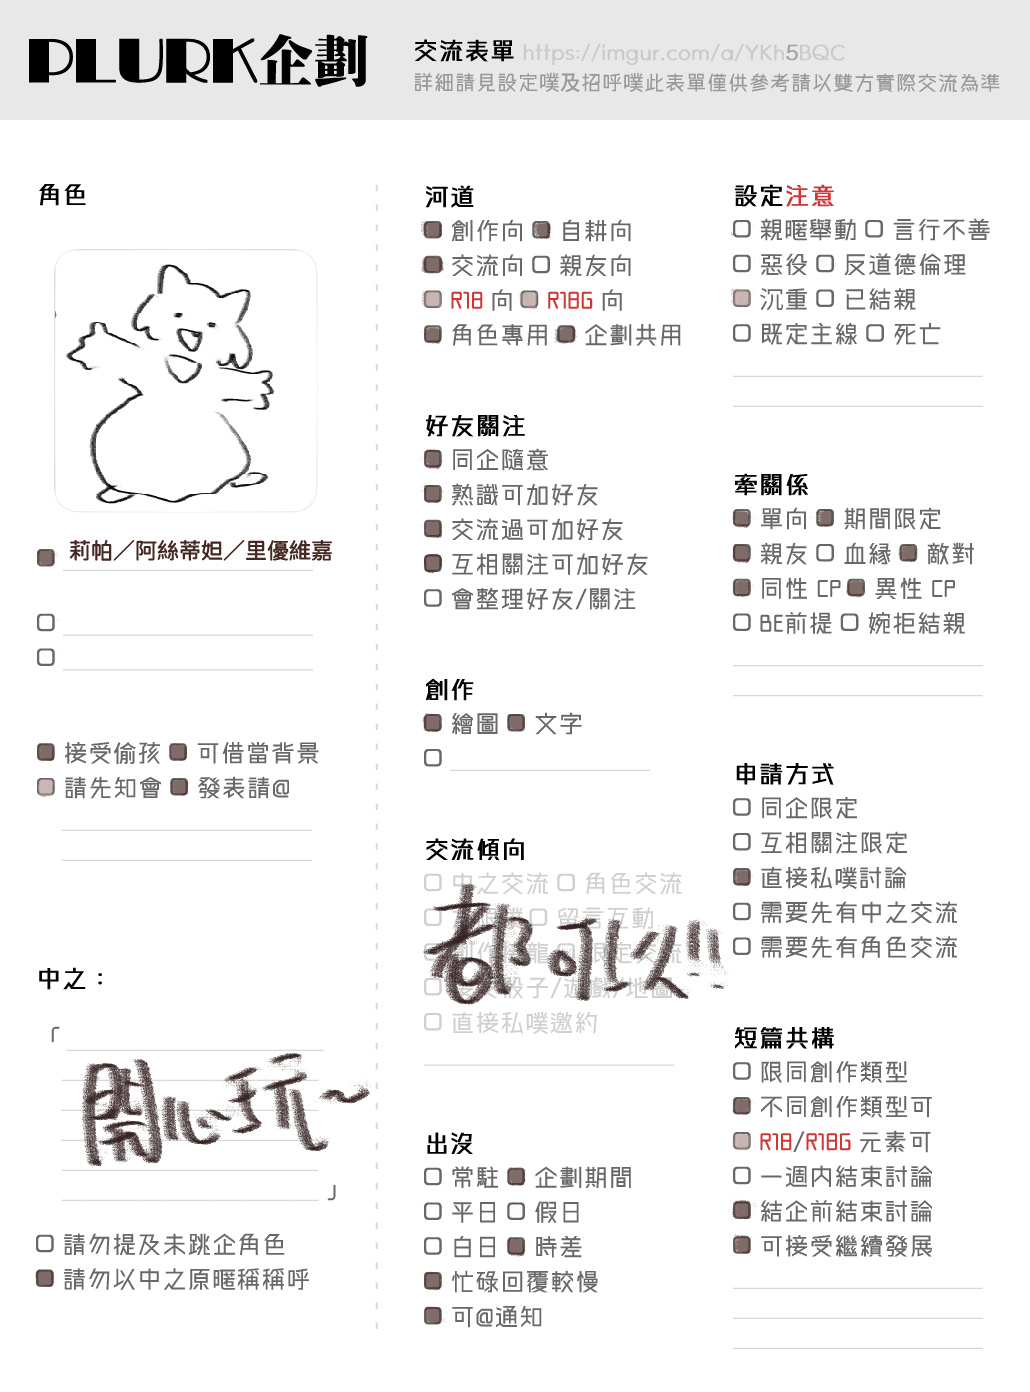 PLURK企劃
交流表單 https://imgur.com/a/YKh5BQC
詳細請見設定噗及招呼噗此表單僅供參考請以雙方實際交流為準
角色
莉帕／阿絲蒂妲／里優維嘉
接受偷孩 可借當背景
請先知會 發表請@
中之：
「
開心玩～
」
請勿提及未跳企角色
請勿以中之原暱稱稱呼
河道
創作向 自耕向
交流向 親友向
R18 向 R18G 向
角色專用 企劃共用
好友關注
同企隨意
熟識可加好友
交流過可加好友
互相關注可加好友
會整理好友/關注
創作
繪圖 文字
交流傾向
中之交流 角色交流
留言互動
都可以!!
子/遊戲/地圖
直接私噗邀約
出沒
常駐 企劃期間
平日 假日
白日 時差
忙碌回覆較慢
可@通知
設定注意
親暱舉動 言行不善
惡役 反道德倫理
沉重 已結親
既定主線 死亡
牽關係
單向 期間限定
親友 血緣 敵對
同性 CP 異性 CP
BE前提 婉拒結親
申請方式
同企限定
互相關注限定
直接私噗討論
需要先有中之交流
需要先有角色交流
短篇共構
限同創作類型
不同創作類型可
R18/R18G 元素可
一週內結束討論
結企前結束討論
可接受繼續發展